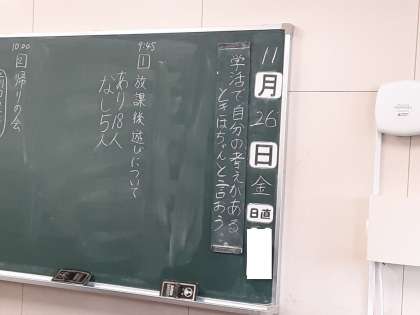 11
月
26
日
金
日直
学活で自分の考えがある
ときはちゃんと言おう。
9:45
1 放課後遊びについて
あり18人
なし5人
10:00
2 帰りの会